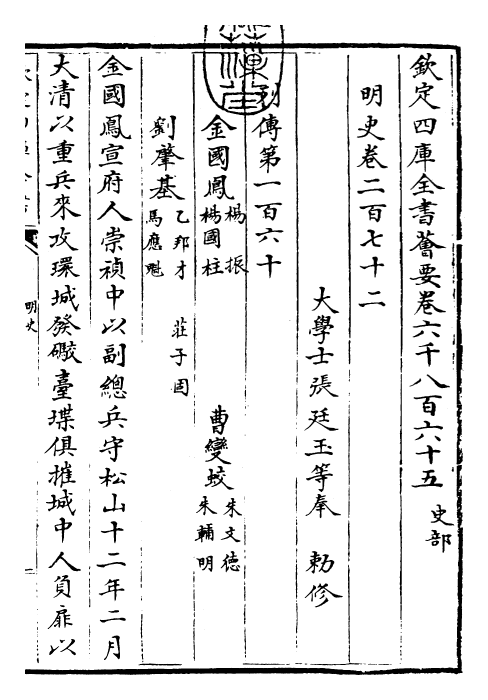 欽定四庫全書薈要卷六千八百六十五 史部
明史卷二百七十二
大學士張廷玉等奉 勅修
列傳第一百六十
金國鳳 楊振 楊國柱 曹變蛟 朱文德 朱輔明
劉肇基 乙邦才 馬應魁 莊子固
金國鳳宣府人崇禎中以副總兵守松山十二年二月
大清以重兵來攻環城發礮臺堞俱摧城中人負扉以
明史